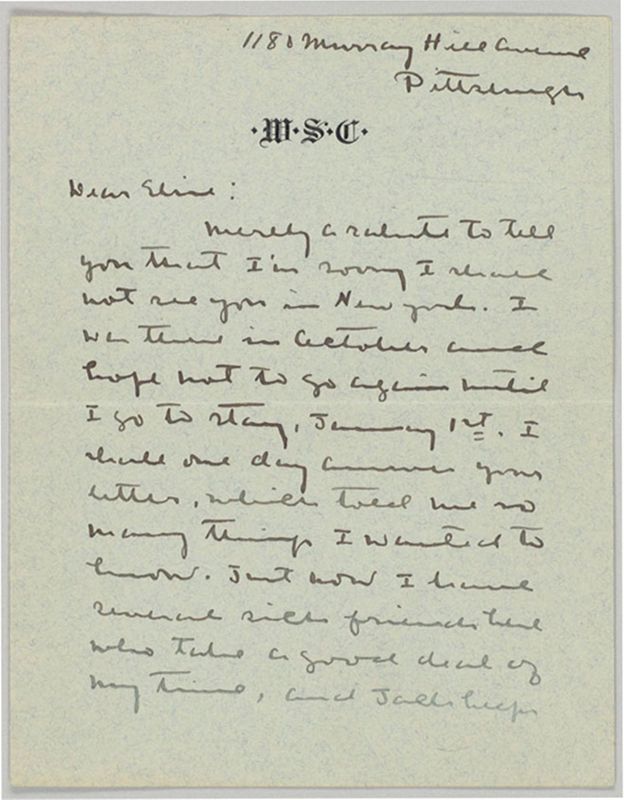 1180 Murray Hill Avenue
Pittsburgh
·W·S·C·
Dear Elsie:
Merely a salute to tell
you that I'm sorry I shall
not see you in New York. I
was there in October and
hope not to go again until
I go to stay, January 1st. I
shall one day answer your
letter, which told me so
many things I wanted to
know. Just now I have
several sick friends here
who take a good deal of
my time, and Jack keeps